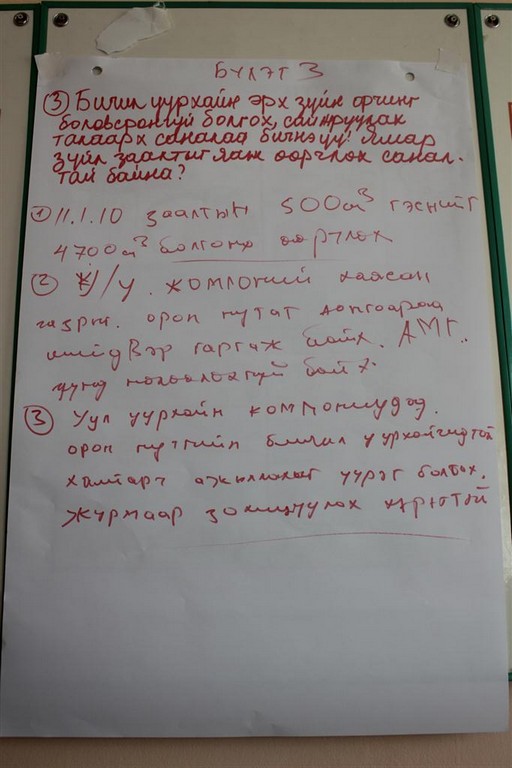 БҮЛЭГ 3
③ Бичил уурхайн эрх зүйн орчинг
боловсронгуй болгох, сайжруулах
талаарх саналаа бичнэ үү! Ямар
зүйл заалтыг яаж өөрчлөх санал-
тай байна?
① 11.1.10 заалтын 500м³ гэснийг
4700м³ болгонж өөрчлөх
② У/у. компоний хаясан
газрыг. орон нутаг донгоороо
шийдвэр гаргаж байх. АМГ..
үүнд нөлөөлөхгүй байх.
③ Уул уурхайн компониудад.
орон нутгийн бичил уурхайчидтай
хамтарч ажиллахыг үүрэг болгох.
журмаар зохицуулах хэрэгтэй